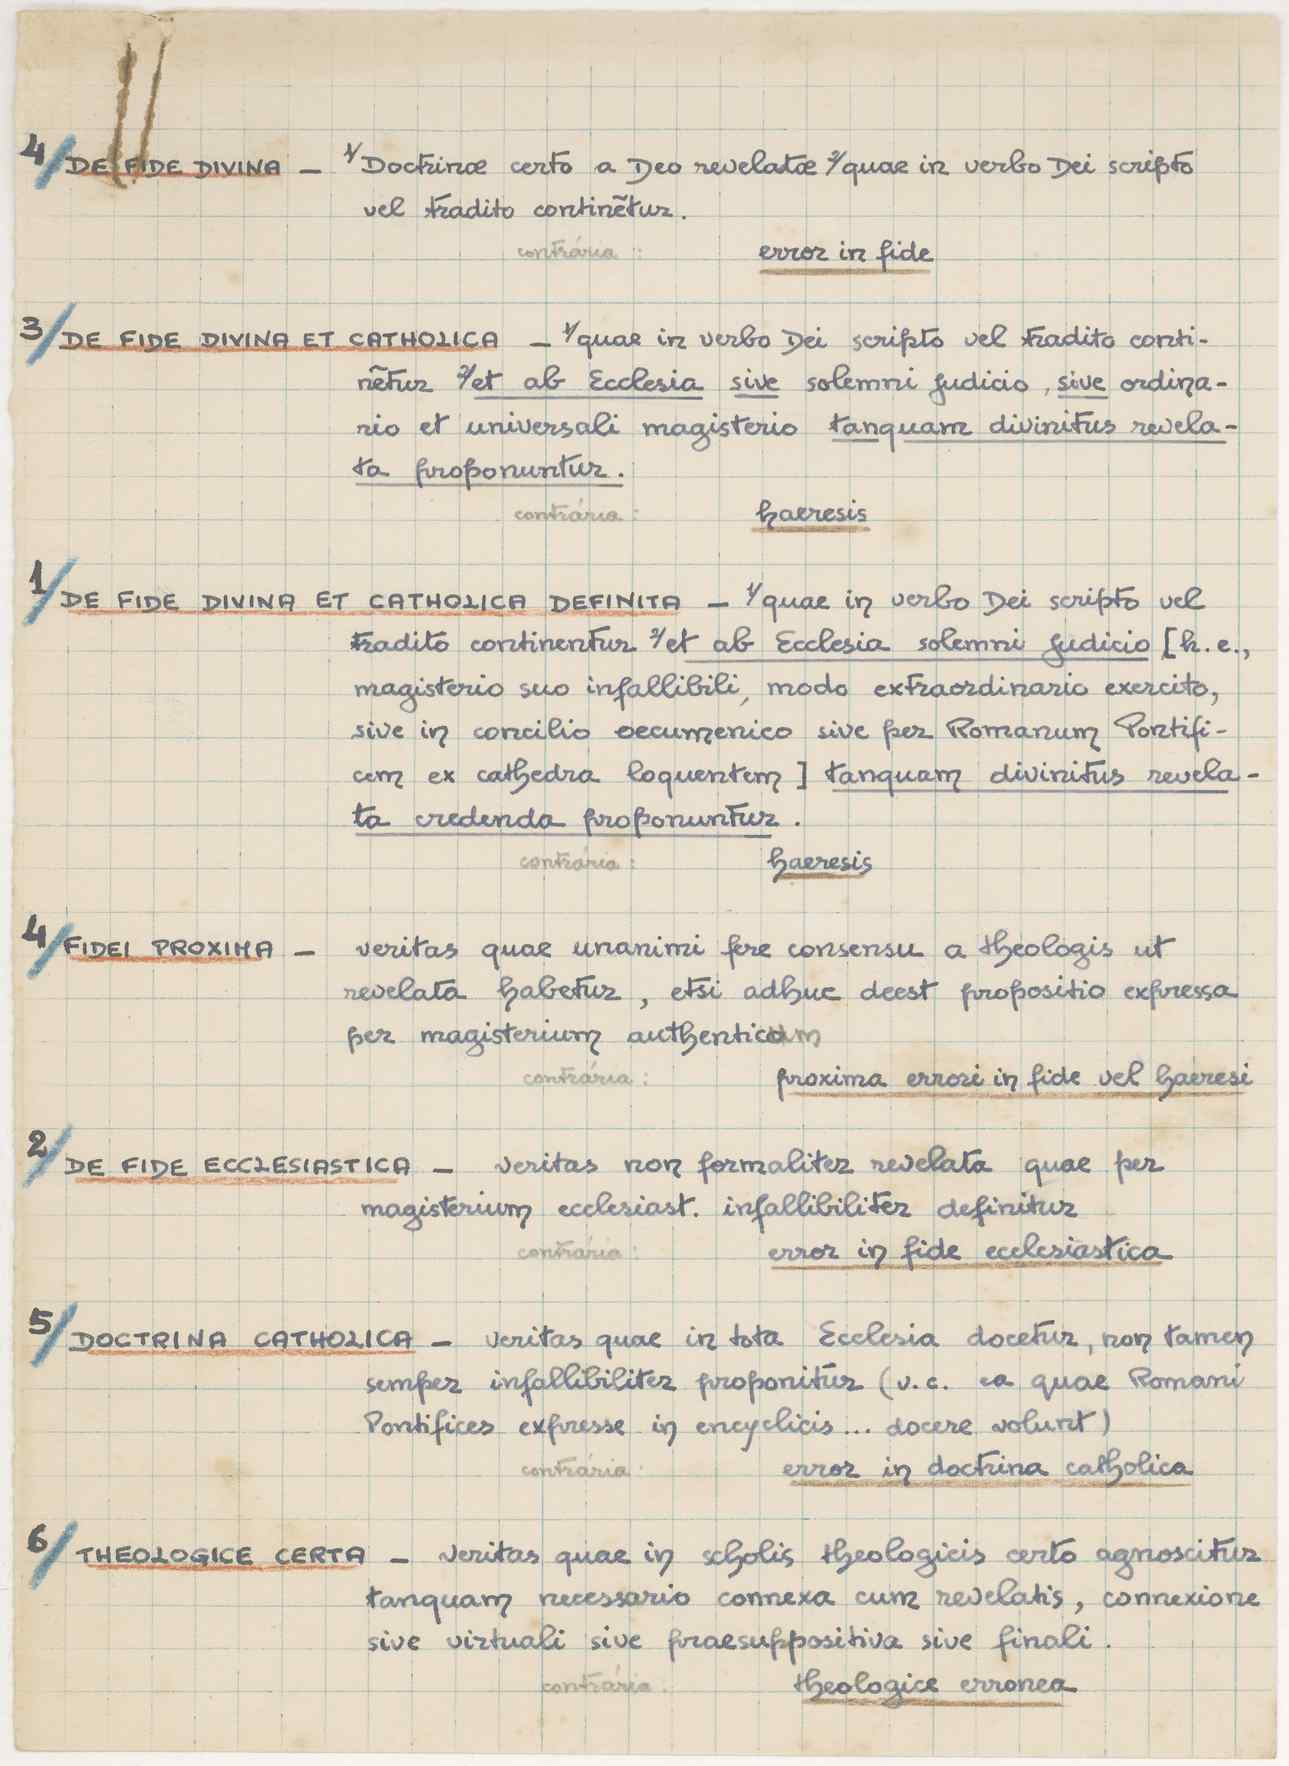 4/ DE FIDE DIVINA — 1/ Doctrinæ certo a Deo revelatæ 2/ quae in verbo Dei scripto
vel tradito continẽtur.
contrária : error in fide
3/ DE FIDE DIVINA ET CATHOLICA — 1/ quae in verbo Dei scripto vel tradito conti-
nẽtur 2/ et ab Ecclesia sive solemni judicio, sive ordina-
rio et universali magisterio tanquam divinitus revela-
ta proponuntur.
contrária : haeresis
1/ DE FIDE DIVINA ET CATHOLICA DEFINITA — 1/ quae in verbo Dei scripto vel
tradito continentur 2/ et ab Ecclesia solemni judicio [h.e.,
magisterio suo infallibili, modo extraordinario exercito,
sive in concilio oecumenico sive per Romanum Pontifi-
cem ex cathedra loquentem] tanquam divinitus revela-
ta credenda proponuntur.
contrária : haeresis
4/ FIDEI PROXIMA — veritas quae unanimi fere consensu a theologis ut
revelata habetur, etsi adhuc deest propositio expressa
per magisterium authenticum
contrária : proxima errori in fide vel haeresi
2/ DE FIDE ECCLESIASTICA — veritas non formaliter revelata quae per
magisterium ecclesiast. infallibiliter definitur
contrária : error in fide ecclesiastica
5/ DOCTRINA CATHOLICA — veritas quae in tota Ecclesia docetur, non tamen
semper infallibiliter proponitur (v.c. ea quae Romani
Pontifices expresse in encyclicis... docere volunt)
contrária : error in doctrina catholica
6/ THEOLOGICE CERTA — veritas quae in scholis theologicis certo agnoscitur
tanquam necessario connexa cum revelatis, connexione
sive virtuali sive praesuppositiva sive finali.
contrária : theologice erronea